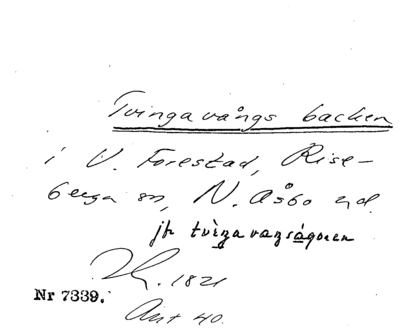 Tvingavångs backen
i V. Forestad, Rise-
berga sn, N. Åsbo hd.
jfr tvingavangságoren
1821
Nr 7339.
Ant 40.